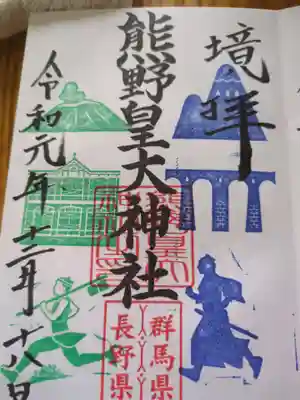 境拝
熊野皇大神社
令和元年十二月十八日
群馬県
長野県